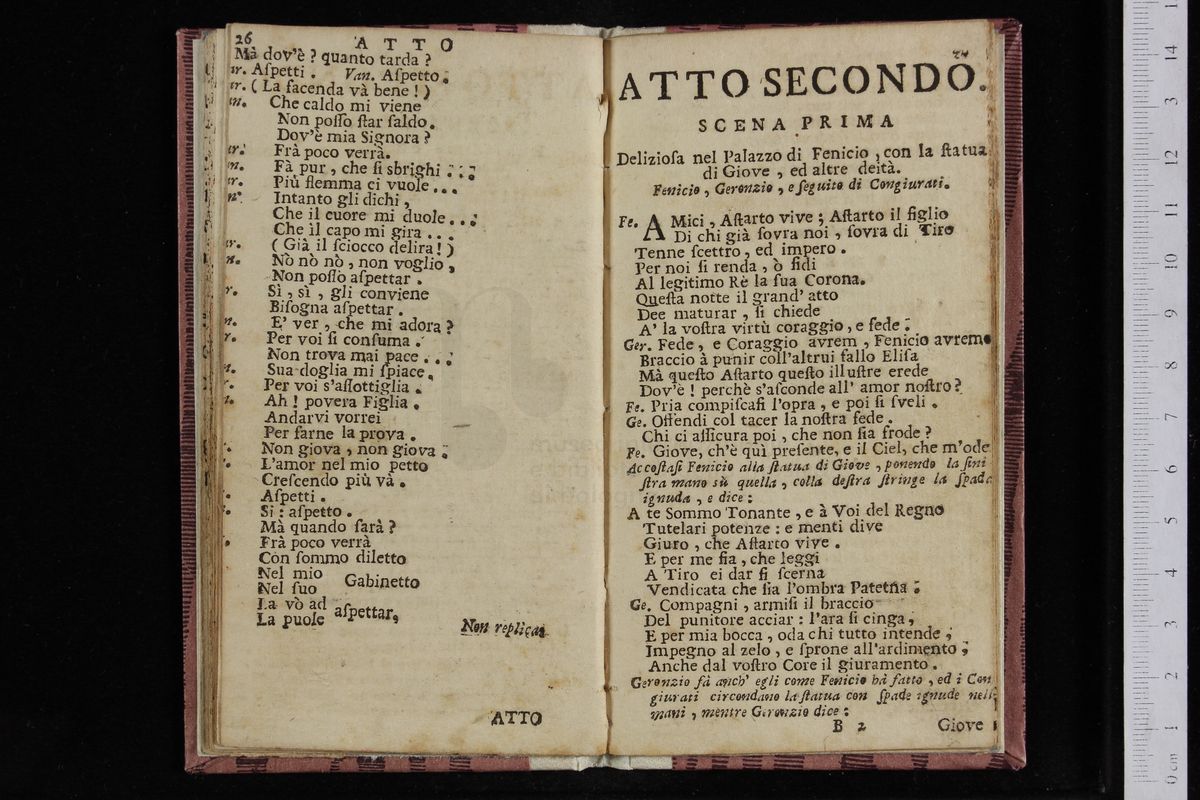 26 ATTO
Mà dov'è ? quanto tarda ?
ır. Aſpetti . Van. Aſpetto .
ır. ( La facenda và bene ! )
ın. Che caldo mi viene
Non poſſo ſtar ſaldo .
Dov'è mia Signora ?
ır. Frà poco verrà.
ın. Fà pur , che ſi sbrighi . . .
ır. Più flemma ci vuole . . .
n. Intanto gli dichi ,
Che il cuore mi duole . . .
Che il capo mi gira . . .
ır. ( Già il ſciocco delira ! )
n. Nò nò nò , non voglio ,
Non poſſo aſpettar .
r. Sì , sì , gli conviene
Biſogna aſpettar .
n. E' ver , che mi adora ?
r. Per voi ſi conſuma .
Non trova mai pace . . .
n. Sua doglia mi ſpiace .
r. Per voi s'aſſottiglia .
n. Ah ! povera Figlia .
Andarvi vorrei
Per farne la prova .
Non giova , non giova .
L'amor nel mio petto
Creſcendo più và .
Aſpetti .
Sì : aſpetto .
Mà quando ſarà ?
Frà poco verrà
Con ſommo diletto
Nel mio
Nel ſuo Gabinetto
La vò ad
La puole aſpettar.
Non replica
ATTO
27
ATTO SECONDO.
SCENA PRIMA
Delizioſa nel Palazzo di Fenicio , con la ſtatua
di Giove , ed altre deità.
Fenicio , Geronzio , e ſeguito di Congiurati.
Fe. AMici , Aſtarto vive ; Aſtarto il figlio
Di chi già ſovra noi , ſovra di Tiro
Tenne ſcettro , ed impero .
Per noi ſi renda , ò fidi
Al legitimo Rè la ſua Corona.
Queſta notte il grand' atto
Dee maturar , ſi chiede
A' la voſtra virtù coraggio , e fede .
Ger. Fede , e Coraggio avrem , Fenicio avremo
Braccio à punir coll'altrui fallo Eliſa
Mà queſto Aſtarto queſto illuſtre erede
Dov'è ! perchè s'aſconde all' amor noſtro ?
Fe. Pria compiſcaſi l'opra , e poi ſi ſveli .
Ge. Offendi col tacer la noſtra fede .
Chi ci aſſicura poi , che non ſia frode ?
Fe. Giove, ch'è quì preſente, e il Ciel, che m'ode
Accoſtaſi Fenicio alla ſtatua di Giove , ponendo la ſini
ſtra mano sù quella , colla deſtra ſtringe la ſpada
ignuda , e dice :
A te Sommo Tonante , e à Voi del Regno
Tutelari potenze : e menti dive
Giuro , che Aſtarto vive .
E per me ſia , che leggi
A Tiro ei dar ſi ſcerna
Vendicata che ſia l'ombra Patetna .
Ge. Compagni , armiſi il braccio
Del punitore acciar : l'ara ſi cinga ,
E per mia bocca , oda chi tutto intende ;
Impegno al zelo , e ſprone all'ardimento ;
Anche dal voſtro Core il giuramento .
Geronzio fà anch' egli come Fenicio hà fatto , ed i Con
giurati circondano la ſtatua con ſpade ignude nelle
mani , mentre Geronzio dice :
B 2 Giove